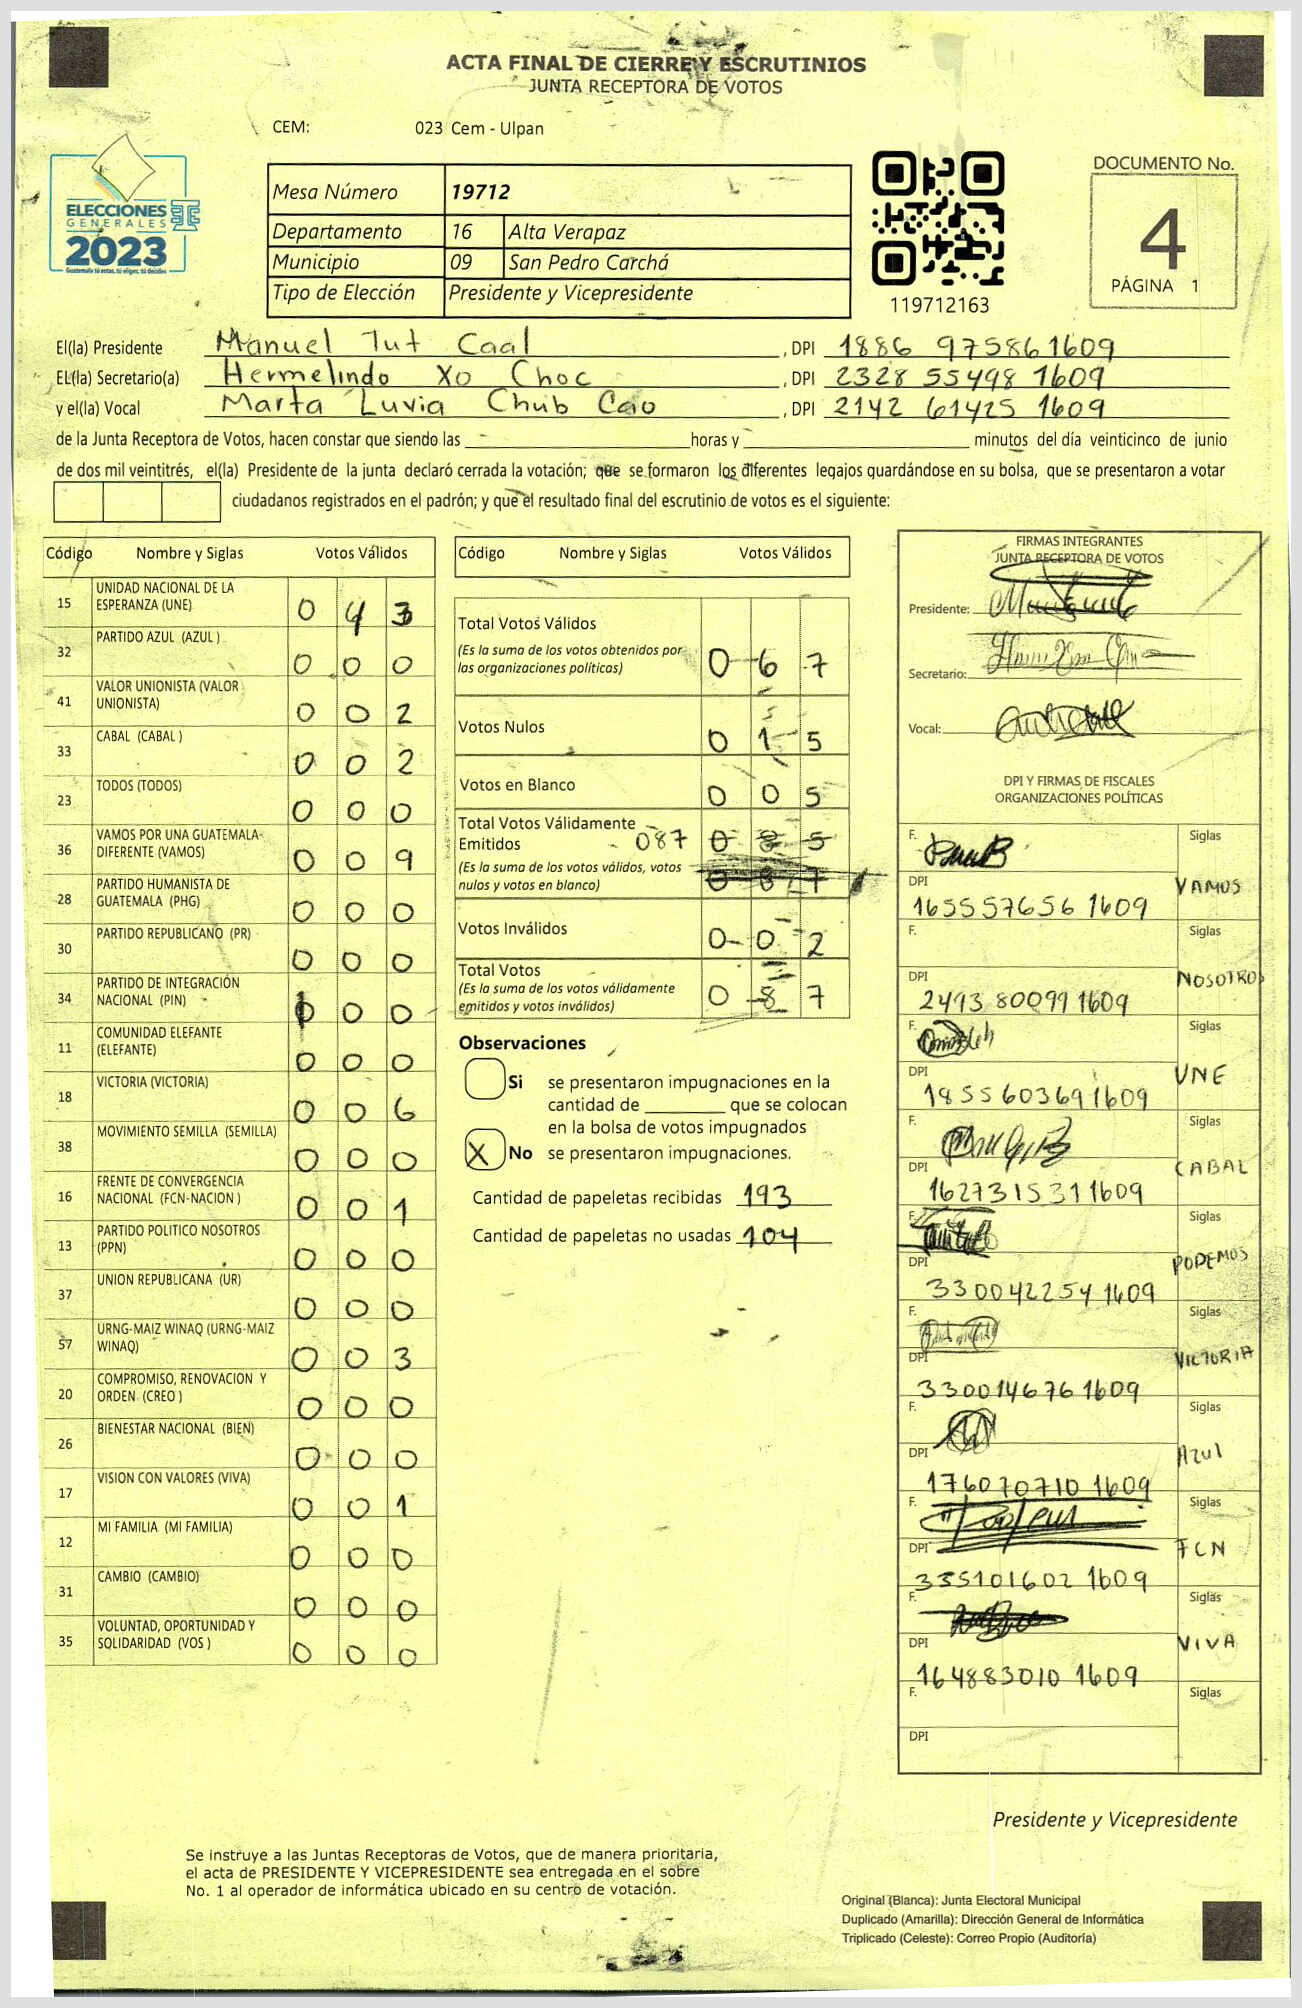 ACTA FINAL DE CIERRE Y ESCRUTINIOS
JUNTA RECEPTORA DE VOTOS
CEM: 023 Cem - Ulpan
ELECCIONES
GENERALES
2023
Guatemala tú estas, tú eliges, tú decides
Mesa Número 19712
Departamento 16 Alta Verapaz
Municipio 09 San Pedro Carchá
Tipo de Elección Presidente y Vicepresidente
119712163
DOCUMENTO No.
4
PÁGINA 1
El(la) Presidente Manuel Tut Caal , DPI 1886 97586 1609
EL(la) Secretario(a) Hermelindo Xo Choc , DPI 2328 55498 1609
y el(la) Vocal Marta Luvia Chub Cao , DPI 2142 61425 1609
de la Junta Receptora de Votos, hacen constar que siendo las horas y minutos del día veinticinco de junio
de dos mil veintitrés, el(la) Presidente de la junta declaró cerrada la votación; que se formaron los diferentes legajos guardándose en su bolsa, que se presentaron a votar
ciudadanos registrados en el padrón; y que el resultado final del escrutinio de votos es el siguiente:
Código Nombre y Siglas Votos Válidos
15 UNIDAD NACIONAL DE LA ESPERANZA (UNE) 0 4 3
32 PARTIDO AZUL (AZUL ) 0 0 0
41 VALOR UNIONISTA (VALOR UNIONISTA) 0 0 2
33 CABAL (CABAL ) 0 0 2
23 TODOS (TODOS) 0 0 0
36 VAMOS POR UNA GUATEMALA DIFERENTE (VAMOS) 0 0 9
28 PARTIDO HUMANISTA DE GUATEMALA (PHG) 0 0 0
30 PARTIDO REPUBLICANO (PR) 0 0 0
34 PARTIDO DE INTEGRACIÓN NACIONAL (PIN) 0 0 0
11 COMUNIDAD ELEFANTE (ELEFANTE) 0 0 0
18 VICTORIA (VICTORIA) 0 0 6
38 MOVIMIENTO SEMILLA (SEMILLA) 0 0 0
16 FRENTE DE CONVERGENCIA NACIONAL (FCN-NACION ) 0 0 1
13 PARTIDO POLITICO NOSOTROS (PPN) 0 0 0
37 UNION REPUBLICANA (UR) 0 0 0
57 URNG-MAIZ WINAQ (URNG-MAIZ WINAQ) 0 0 3
20 COMPROMISO, RENOVACION Y ORDEN (CREO ) 0 0 0
26 BIENESTAR NACIONAL (BIEN) 0 0 0
17 VISION CON VALORES (VIVA) 0 0 1
12 MI FAMILIA (MI FAMILIA) 0 0 0
31 CAMBIO (CAMBIO) 0 0 0
35 VOLUNTAD, OPORTUNIDAD Y SOLIDARIDAD (VOS ) 0 0 0
Código Nombre y Siglas Votos Válidos
Total Votos Válidos
(Es la suma de los votos obtenidos por
las organizaciones políticas) 0 6 7
Votos Nulos 0 1 5
Votos en Blanco 0 0 5
Total Votos Válidamente
Emitidos 087 0 8 5
(Es la suma de los votos válidos, votos
nulos y votos en blanco) 0 8 7
Votos Inválidos 0 0 2
Total Votos
(Es la suma de los votos válidamente
emitidos y votos inválidos) 0 8 7
Observaciones
Si se presentaron impugnaciones en la
cantidad de que se colocan
en la bolsa de votos impugnados
X No se presentaron impugnaciones.
Cantidad de papeletas recibidas 193
Cantidad de papeletas no usadas 104
FIRMAS INTEGRANTES
JUNTA RECEPTORA DE VOTOS
Presidente:
Secretario:
Vocal:
DPI Y FIRMAS DE FISCALES
ORGANIZACIONES POLÍTICAS
F. Siglas
DPI VAMOS
165557656 1609
F. Siglas
DPI NOSOTROS
2493 80099 1609
F. Siglas
DPI UNE
185560369 1609
F. Siglas
DPI CABAL
162731531 1609
F. Siglas
DPI PODEMOS
330042254 1609
F. Siglas
DPI VICTORIA
330014676 1609
F. Siglas
DPI Azul
176070710 1609
F. Siglas
DPI FCN
335101602 1609
F. Siglas
DPI VIVA
164883010 1609
F. Siglas
DPI
Presidente y Vicepresidente
Se instruye a las Juntas Receptoras de Votos, que de manera prioritaria,
el acta de PRESIDENTE Y VICEPRESIDENTE sea entregada en el sobre
No. 1 al operador de informática ubicado en su centro de votación.
Original (Blanca): Junta Electoral Municipal
Duplicado (Amarilla): Dirección General de Informática
Triplicado (Celeste): Correo Propio (Auditoría)